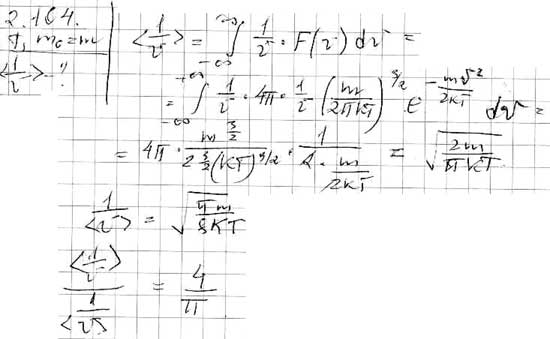 2.164.
T, m₀=m
<1/v> - ?
<1/v> = ∫_{-∞}^{+∞} 1/v · F(v) dv =
= ∫_{-∞}^{+∞} 1/v · 4π · 1/v (m/2πkT)^{3/2} · e^{-mv²/2kT} dv =
= 4π · m^{3/2}/2^{3/2}(kT)^{3/2} · 1/(2 · m/2kT) = √(2m/πkT)
1/<v> = √(πm/8kT)
<1/v> / (1/<v>) = 4/π